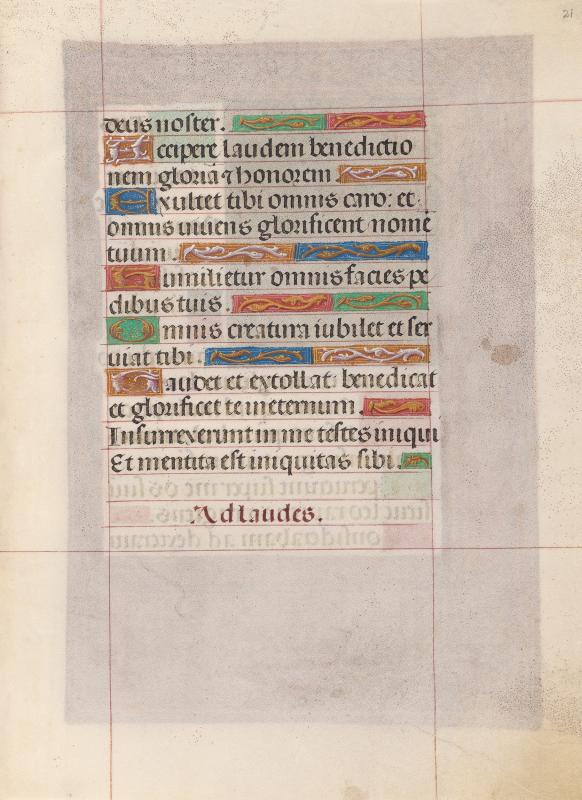 21
deus noster.
Accipere laudem benedictio
nem gloriā ⁊ honorem.
Exultet tibi omnis caro: et
omnis uiuens glorificent nomē
tuum.
Humilietur omnis facies pe
dibus tuis.
Omnis creatura iubilet et ser
uiat tibi.
Gaudet et extollat: benedicat
et glorificet te ineternum.
Insurrexerunt in me testes iniqui
Et mentita est iniquitas sibi.
Ad laudes.